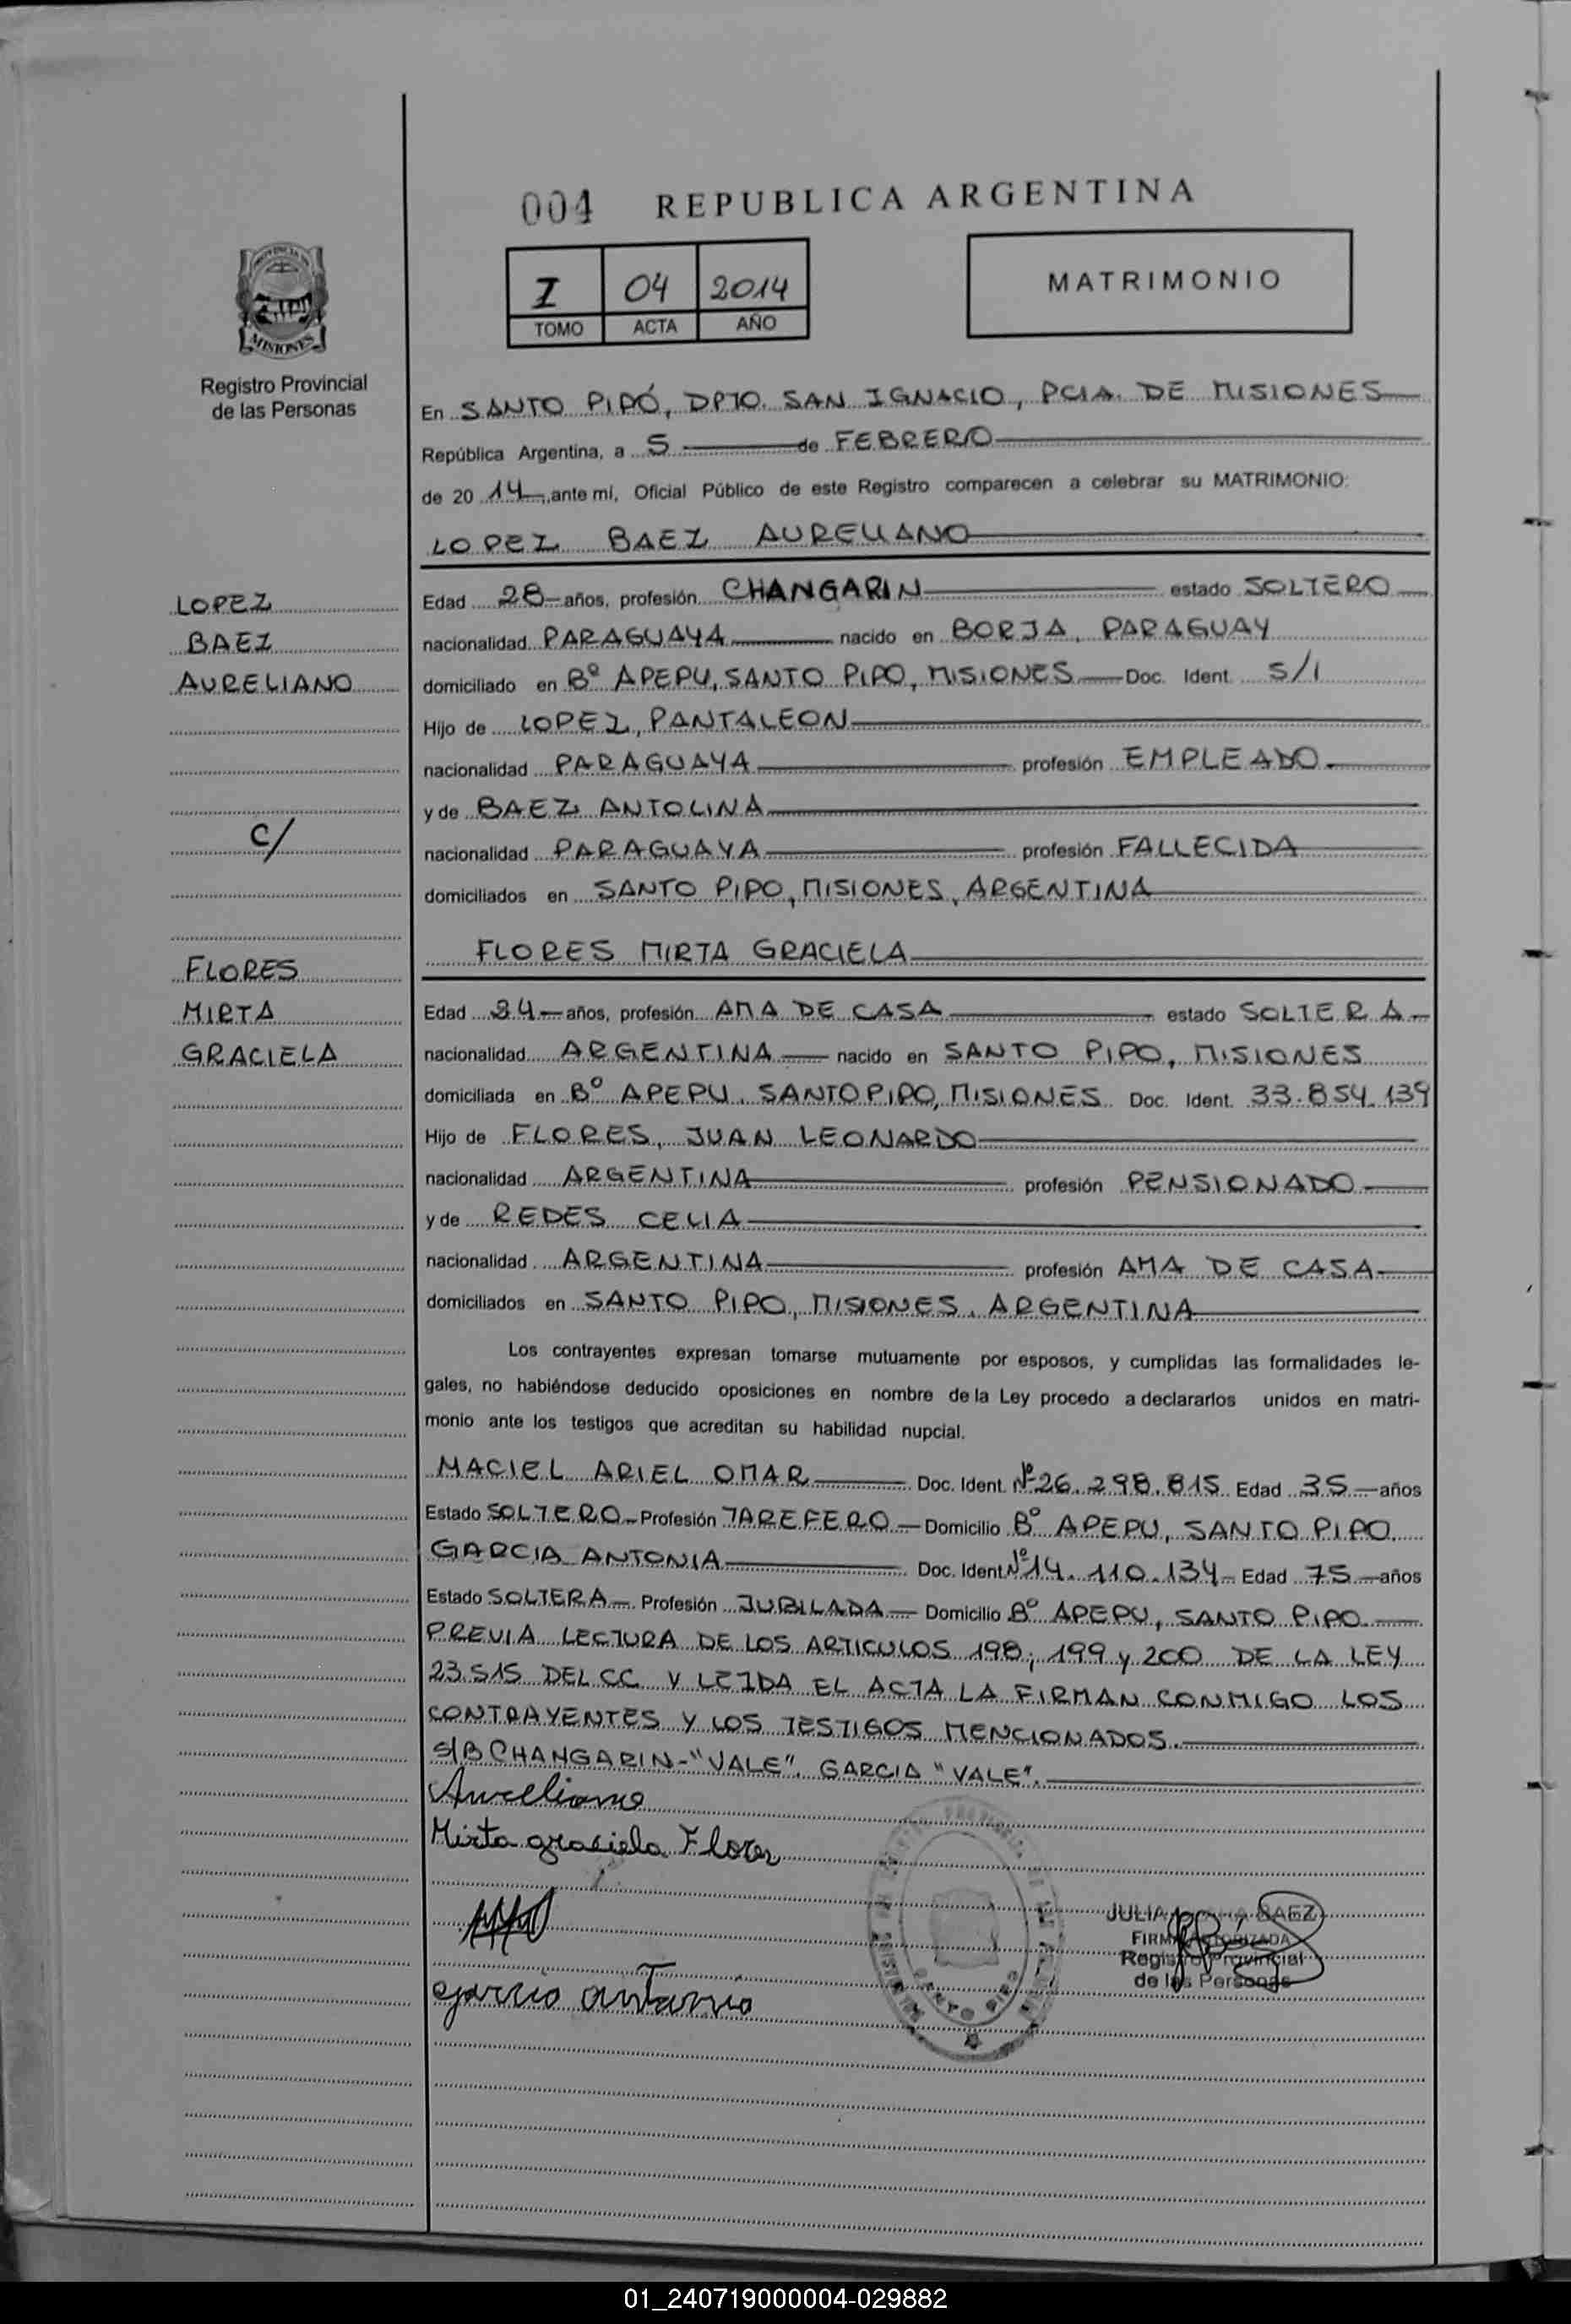 004 REPUBLICA ARGENTINA
I 04 2014
TOMO ACTA AÑO
MATRIMONIO
PROVINCIA DE
MISIONES
Registro Provincial
de las Personas
En SANTO PIPÓ, DPTO. SAN IGNACIO, PCIA. DE MISIONES
República Argentina, a 5 de FEBRERO
de 20 14, ante mí, Oficial Público de este Registro comparecen a celebrar su MATRIMONIO:
LOPEZ BAEZ AURELIANO
LOPEZ
BAEZ
AURELIANO
C/
FLORES
MIRTA
GRACIELA
Edad 28 años, profesión CHANGARIN estado SOLTERO
nacionalidad PARAGUAYA nacido en BORJA, PARAGUAY
domiciliado en Bº APEPU, SANTO PIPO, MISIONES Doc. Ident. S/I
Hijo de LOPEZ, PANTALEON
nacionalidad PARAGUAYA profesión EMPLEADO
y de BAEZ ANTOLINA
nacionalidad PARAGUAYA profesión FALLECIDA
domiciliados en SANTO PIPO, MISIONES, ARGENTINA
FLORES MIRTA GRACIELA
Edad 24 años, profesión AMA DE CASA estado SOLTERA
nacionalidad ARGENTINA nacido en SANTO PIPO, MISIONES
domiciliada en Bº APEPU. SANTO PIPO, MISIONES Doc. Ident. 33.854.139
Hijo de FLORES, JUAN LEONARDO
nacionalidad ARGENTINA profesión PENSIONADO
y de REDES CELIA
nacionalidad ARGENTINA profesión AMA DE CASA
domiciliados en SANTO PIPO, MISIONES, ARGENTINA
Los contrayentes expresan tomarse mutuamente por esposos, y cumplidas las formalidades le-
gales, no habiéndose deducido oposiciones en nombre de la Ley procedo a declararlos unidos en matri-
monio ante los testigos que acreditan su habilidad nupcial.
MACIEL ARIEL OMAR Doc. Ident. Nº 26.298.815 Edad 35 años
Estado SOLTERO Profesión TAREFERO Domicilio Bº APEPU, SANTO PIPO.
GARCIA ANTONIA Doc. Ident. Nº 14.110.134 Edad 75 años
Estado SOLTERA Profesión JUBILADA Domicilio Bº APEPU, SANTO PIPO
PREVIA LECTURA DE LOS ARTICULOS 198; 199 y 200 DE LA LEY
23.515 DEL CC Y LEIDA EL ACTA LA FIRMAN CONMIGO LOS
CONTRAYENTES Y LOS TESTIGOS MENCIONADOS.
S/B CHANGARIN-"VALE". GARCIA "VALE".
Aureliano
Mirta graciela Flores
JULIA BAEZ
FIRMA AUTORIZADA
Registro Provincial
de las Personas
garcia antonia
SANTO PIPO
01_240719000004-029882